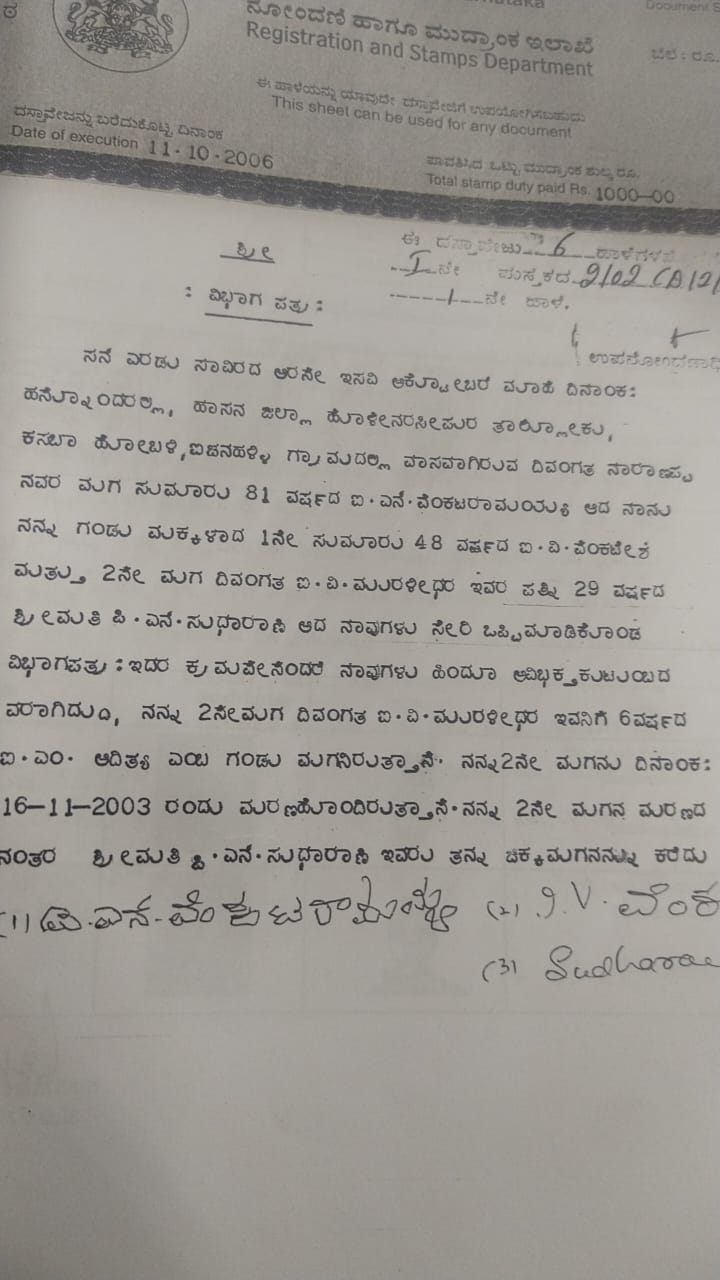 ನೋಂದಣಿ ಹಾಗೂ ಮುದ್ರಾಂಕ ಇಲಾಖೆ
Registration and Stamps Department
Document
ಬೆಲೆ : ರೂ.
ಈ ಹಾಳೆಯನ್ನು ಯಾವುದೇ ದಸ್ತಾವೇಜಿಗೆ ಉಪಯೋಗಿಸಬಹುದು
This sheet can be used for any document
ದಸ್ತಾವೇಜನ್ನು ಬರೆದುಕೊಟ್ಟ ದಿನಾಂಕ
Date of execution 11-10-2006
ಪಾವತಿಸಿದ ಒಟ್ಟು ಮುದ್ರಾಂಕ ಶುಲ್ಕ ರೂ.
Total stamp duty paid Rs. 1000-00
ಶ್ರೀ
ಈ ದಸ್ತಾವೇಜು 6 ಹಾಳೆಗಳ
I ನೇ ಪುಸ್ತಕದ 2102
: ವಿಭಾಗ ಪತ್ರ :
1 ನೇ ಹಾಳೆ.
ಸನೆ ಎರಡು ಸಾವಿರದ ಆರನೇ ಇಸವಿ ಅಕ್ಟೋಬರ್ ಮಾಹೆ ದಿನಾಂಕ:
ಹನ್ನೊಂದರಲ್ಲು, ಹಾಸನ ಜಿಲ್ಲಾ ಹೊಳೇನರಸೀಪುರ ತಾಲ್ಲೋಕು,
ಕಸಬಾ ಹೋಬಳಿ, ಐಚನಹಳ್ಳಿ ಗ್ರಾಮದಲ್ಲಿ ವಾಸವಾಗಿರುವ ದಿವಂಗತ ನಾರಾಣಪ್ಪ
ನವರ ಮಗ ಸುಮಾರು 81 ವರ್ಷದ ಐ.ಎನ್.ವೆಂಕಟರಾಮಯ್ಯ ಆದ ನಾನು
ನನ್ನ ಗಂಡು ಮಕ್ಕಳಾದ 1ನೇ ಸುಮಾರು 48 ವರ್ಷದ ಐ.ವಿ.ವೆಂಕಟೇಶ
ಮತ್ತು 2ನೇ ಮಗ ದಿವಂಗತ ಐ.ವಿ.ಮುರಳೀಧರ ಇವರ ಪತ್ನಿ 29 ವರ್ಷದ
ಶ್ರೀಮತಿ ಪಿ.ಎನ್.ಸುಧಾರಾಣಿ ಆದ ನಾವುಗಳು ಸೇರಿ ಒಪ್ಪಿಮಾಡಿಕೊಂಡ
ವಿಭಾಗಪತ್ರ : ಇದರ ಕ್ರಮವೇನೆಂದರೆ ನಾವುಗಳು ಹಿಂದೂ ಅವಿಭಕ್ತಕುಟುಂಬದ
ವರಾಗಿದ್ದು, ನನ್ನ 2ನೇಮಗ ದಿವಂಗತ ಐ.ವಿ.ಮುರಳೀಧರ ಇವನಿಗೆ 6ವರ್ಷದ
ಐ.ಎಂ. ಆದಿತ್ಯ ಎಂಬ ಗಂಡು ಮಗನಿರುತ್ತಾನೆ. ನನ್ನ 2ನೇ ಮಗನು ದಿನಾಂಕ:
16-11-2003 ರಂದು ಮರಣಹೊಂದಿರುತ್ತಾನೆ.ನನ್ನ 2ನೇ ಮಗನ ಮರಣದ
ನಂತರ ಶ್ರೀಮತಿ ಪಿ.ಎನ್.ಸುಧಾರಾಣಿ ಇವರು ತನ್ನ ಚಿಕ್ಕಮಗನನ್ನು ಕರೆದು
(1) ಐ.ಎನ.ವೆಂಕಟರಾಮಯ್ಯ (2) I.V. ವೆಂಕ
(3) Sudhara